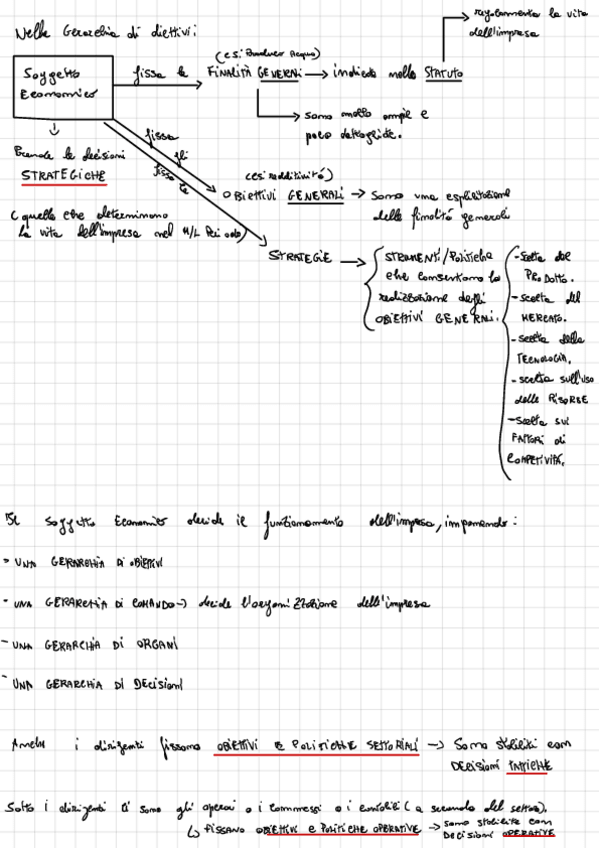 Nella Gerarchia di obiettivi:
Soggetto
Economico
fissa le
(es: Produrre Acqua)
FINALITÀ GENERALI → indicate nello STATUTO
→ regolamenta la vita
dell'impresa
→ sono molto ampie e
poco dettagliate.
Prende le decisioni
STRATEGICHE
(quelle che determinano
la vita dell'impresa nel M/L Periodo)
fissa gli
(es: redditività)
OBIETTIVI GENERALI → Sono una esplicitazione
delle finalità generali
fissa le
STRATEGIE →
STRUMENTI/Politiche
che consentono la
realizzazione degli
OBIETTIVI GENERALI.
- Scelta del
PRODOTTO.
- scelta del
MERCATO.
- scelta della
TECNOLOGIA.
- scelta sull'uso
delle RISORSE
- Scelta sui
FATTORI di
COMPETITIVITÀ.
Il soggetto Economico decide il funzionamento dell'impresa, imponendo:
- UNA GERARCHIA DI OBIETTIVI
- UNA GERARCHIA DI COMANDO → decide l'organizzazione dell'impresa
- UNA GERARCHIA DI ORGANI
- UNA GERARCHIA DI DECISIONI
Anche i dirigenti fissano OBIETTIVI E POLITICHE SETTORIALI → Sono stabiliti con
DECISIONI TATTICHE
Sotto i dirigenti ci sono gli operai o i commessi o i contabili (a seconda del settore).
↳ FISSANO OBIETTIVI E POLITICHE OPERATIVE → sono stabilite con
DECISIONI OPERATIVE